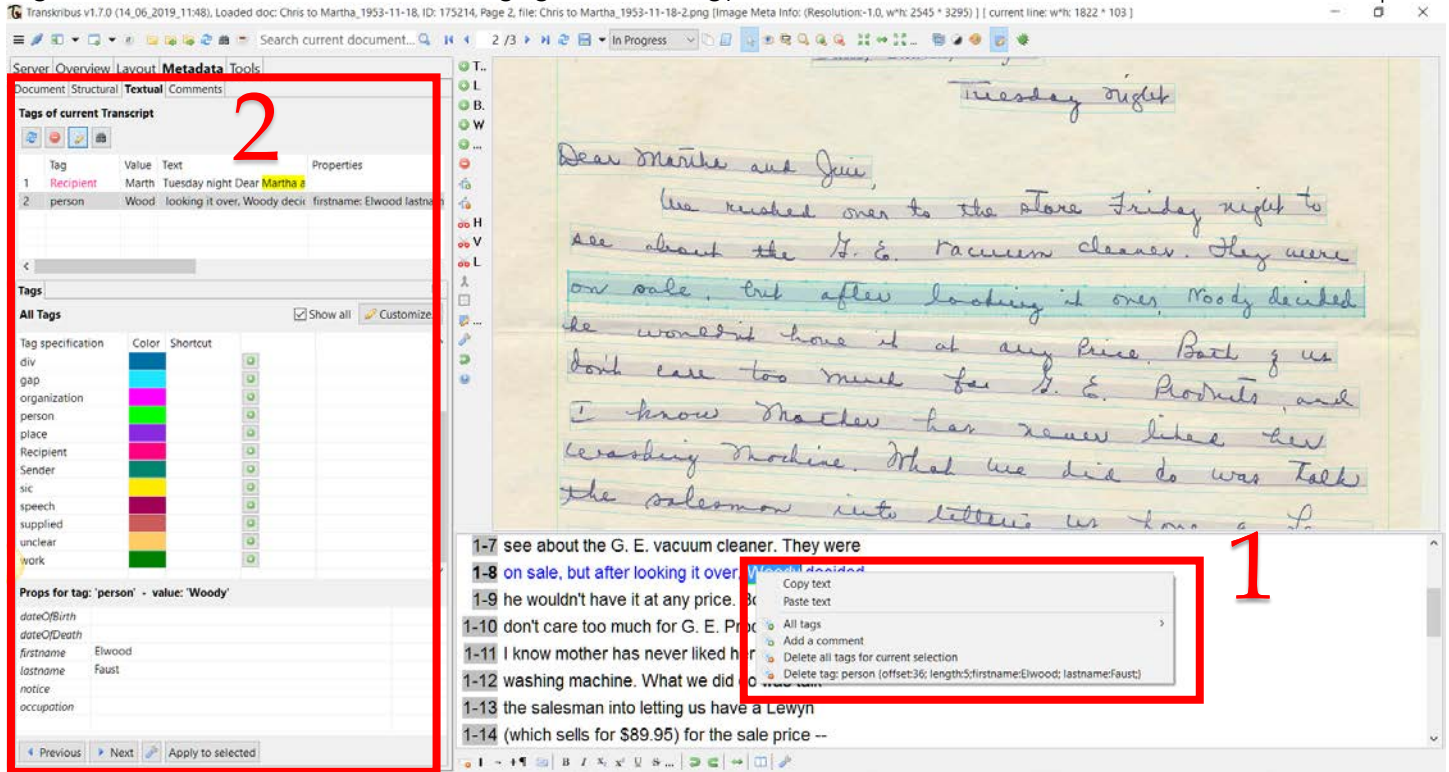 Transkribus v1.7.0 (14_06_2019_11:48), Loaded doc: Chris to Martha_1953-11-18, ID: 175214, Page 2, file: Chris to Martha_1953-11-18-2.png [Image Meta Info: (Resolution:-1.0, w*h: 2545 * 3295) ] [ current line: w*h: 1822 * 103 ]
Search current document... 2 /3 In Progress
Server Overview Layout Metadata Tools
Document Structural Textual Comments
Tags of current Transcript
2
Tag Value Text Properties
1 Recipient Marth Tuesday night Dear Martha a
2 person Wood looking it over, Woody decic firstname: Elwood lastnam
Tags
All Tags Show all Customize..
Tag specification Color Shortcut
div
gap
organization
person
place
Recipient
Sender
sic
speech
supplied
unclear
work
Props for tag: 'person' - value: 'Woody'
dateOfBirth
dateOfDeath
firstname Elwood
lastname Faust
notice
occupation
Previous Next Apply to selected
T..
L
B.
W
...
H
V
L
...
Tuesday night
Dear Martha and Jim,
We rushed over to the store Friday night to
see about the G. E. vacuum cleaner. They were
on sale, but after looking it over, Woody decided
he wouldn't have it at any price. Both of us
don't care too much for G. E. Products, and
I know Mother has never liked her
washing machine. What we did do was talk
the salesman into letting us have a
1-7 see about the G. E. vacuum cleaner. They were
1-8 on sale, but after looking it over, Woody decided
1-9 he wouldn't have it at any price. Bo
1-10 don't care too much for G. E. Prod
1-11 I know mother has never liked her
1-12 washing machine. What we did do was talk
1-13 the salesman into letting us have a Lewyn
1-14 (which sells for $89.95) for the sale price --
1
Copy text
Paste text
All tags
Add a comment
Delete all tags for current selection
Delete tag: person {offset:36; length:5;firstname:Elwood; lastname:Faust;}